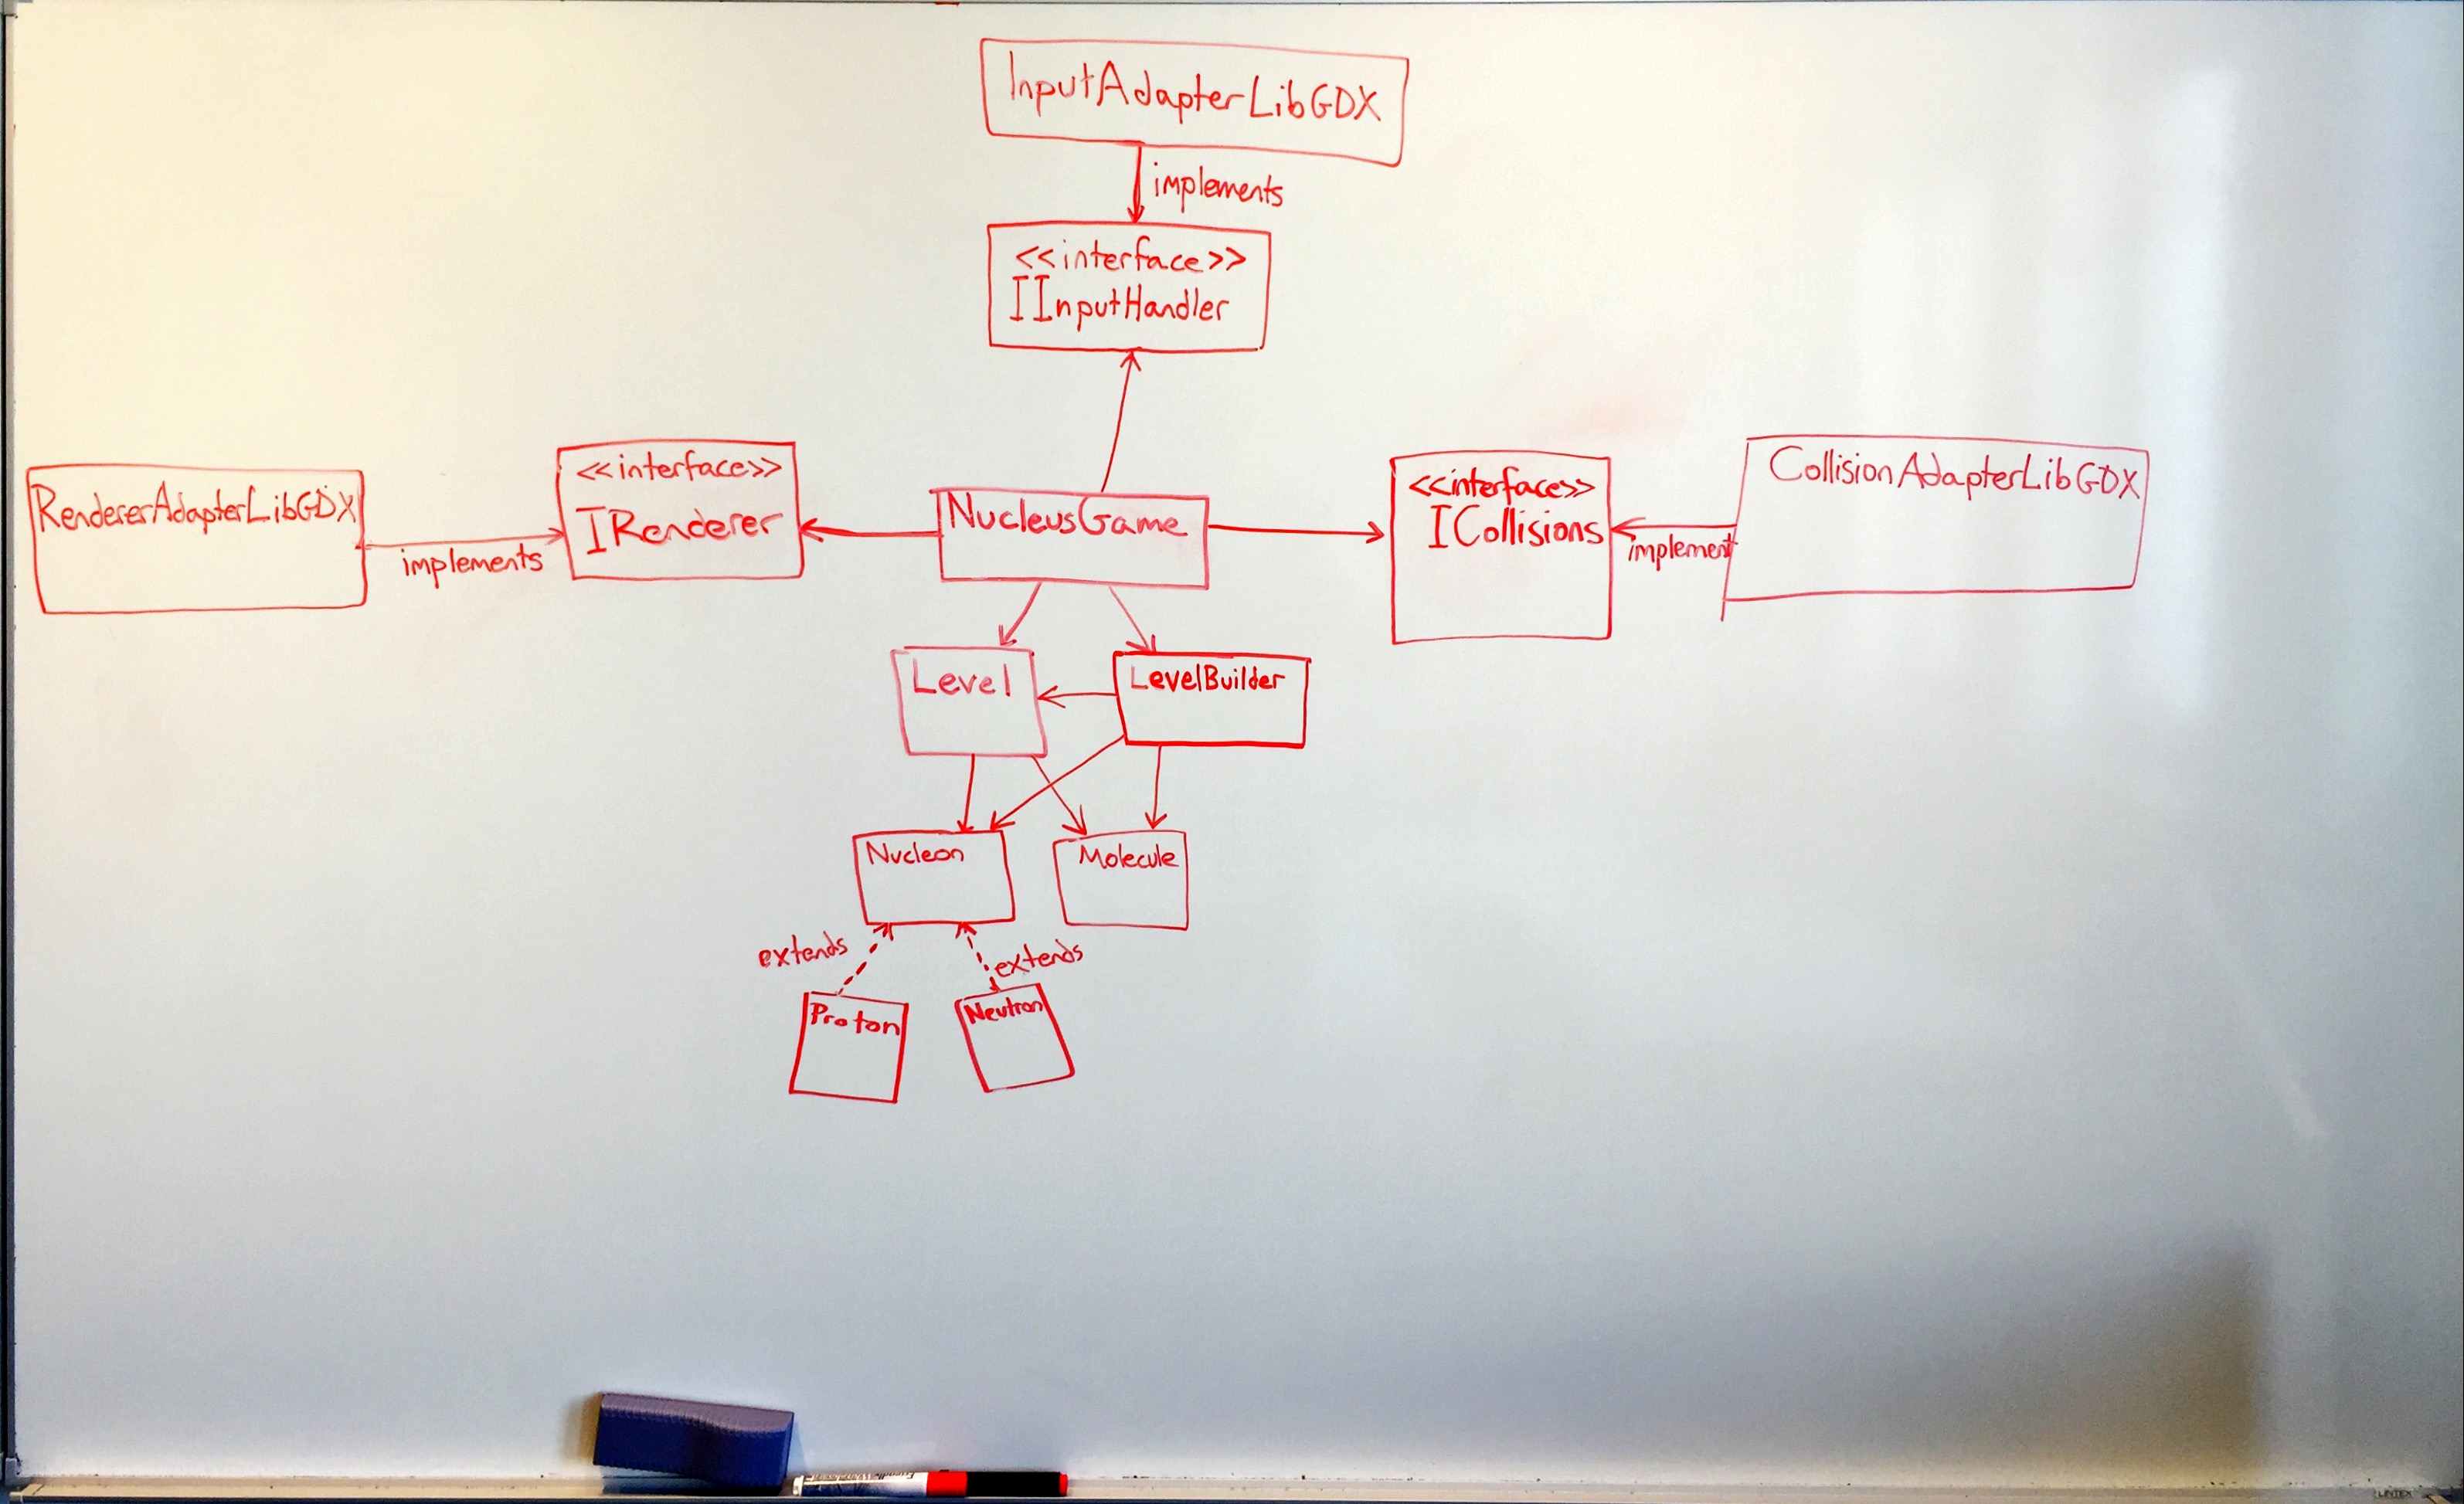 InputAdapterLibGDX
implements
<<interface>>
IInputHandler
RendererAdapterLibGDX
implements
<<interface>>
IRenderer
NucleusGame
<<interface>>
ICollisions
implement
CollisionAdapterLibGDX
Level
LevelBuilder
Nucleon
Molecule
extends
extends
Proton
Neutron